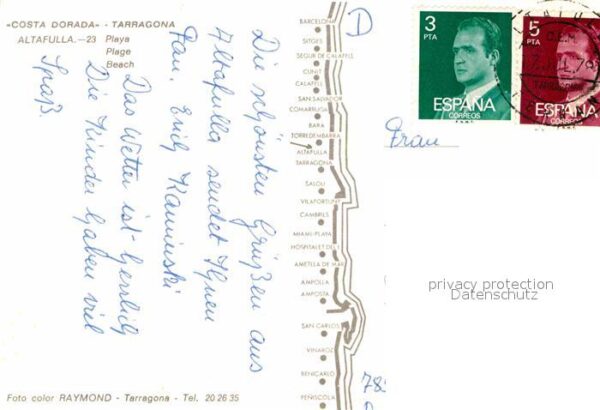 «COSTA DORADA» - TARRAGONA
ALTAFULLA.—23 Playa
Plage
Beach
Die schönsten Grüßen aus
Altafulla sendet Ihnen
Fam. Erich Kaminski
Das Wetter ist herrlich
Die Kinder haben viel
Spaß
Foto color RAYMOND - Tarragona - Tel. 20 26 35
BARCELONA
SITGES
SEGUR DE CALAFELL
CUNIT
CALAFELL
SAN SALVADOR
COMARRUGA
BARA
TORREDEMBARRA
ALTAFULLA
TARRAGONA
SALOU
VILAFORTUNY
CAMBRILS
MIAMI-PLAYA
HOSPITALET DE I.
AMETLLA DE MAR
AMPOLLA
AMPOSTA
SAN CARLOS
VINAROZ
BENICARLO
PEÑISCOLA
D
3
PTA
ESPAÑA
CORREOS
5
PTA
ESPAÑA
CORREOS
Frau
privacy protection
Datenschutz
78
D